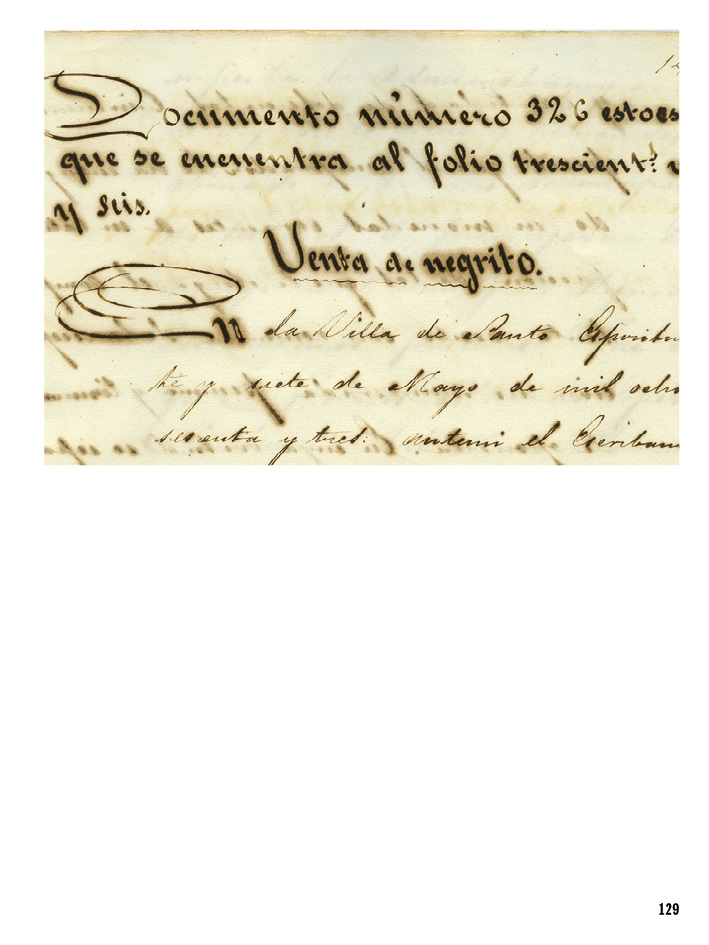 Documento número 326 estoes
que se encuentra al folio trescient.s
y seis.
Venta de negrito.
En la Villa de Santo Espiritu
te y siete de Mayo de mil ocho
sesenta y tres: ante mi el Escribano
129